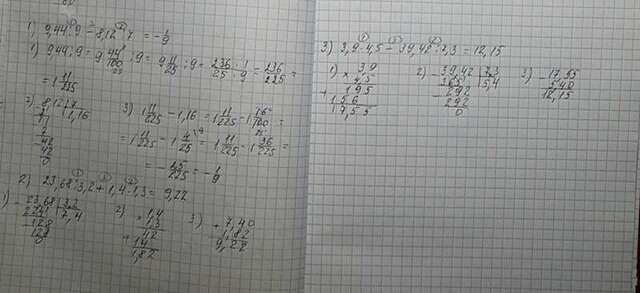 1) 9,44 : 9 - 8,12 : 7 = - 1/9
1) 9,44 : 9 = 9 44/100 : 9 = 9 11/25 : 9 = 236/25 : 1/9 = 236/225 =
= 1 11/225
2) 8,12 | 7
7 | 1,16
11
7
42
42
0
3) 1 11/225 - 1,16 = 1 11/225 - 1 16/100 =
= 1 11/225 - 1 4/25 = 1 11/225 - 1 36/225 =
= - 25/225 = - 1/9
2) 23,68 : 3,2 + 1,4 · 1,3 = 9,22
1) 23,68 | 3,2
224 | 7,4
128
128
0
2) 1,4
× 1,3
42
+ 14
1,82
3) 7,40
+ 1,82
9,22
3) 3,9 · 4,5 - 39,42 : 7,3 = 12,15
1) 3,9
× 4,5
195
+ 156
17,55
2) 39,42 | 7,3
365 | 5,4
292
292
0
3) 17,55
- 5,40
12,15